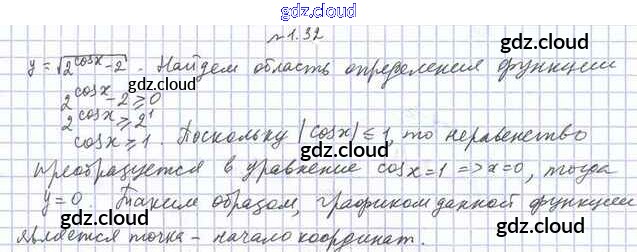 gdz.cloud
№1.32
gdz.cloud
y = √(2^cosx - 2) . Найдем область определения функции
2^cosx - 2 ≥ 0
gdz.cloud
2^cosx ≥ 2^1
cosx ≥ 1. Поскольку |cosx| ≤ 1, то неравенство
gdz.cloud
преобразуется в уравнение cosx = 1 => x=0, тогда
gdz.cloud
y = 0. Таким образом, графиком данной функции
gdz.cloud
является точка - начало координат.
gdz.cloud